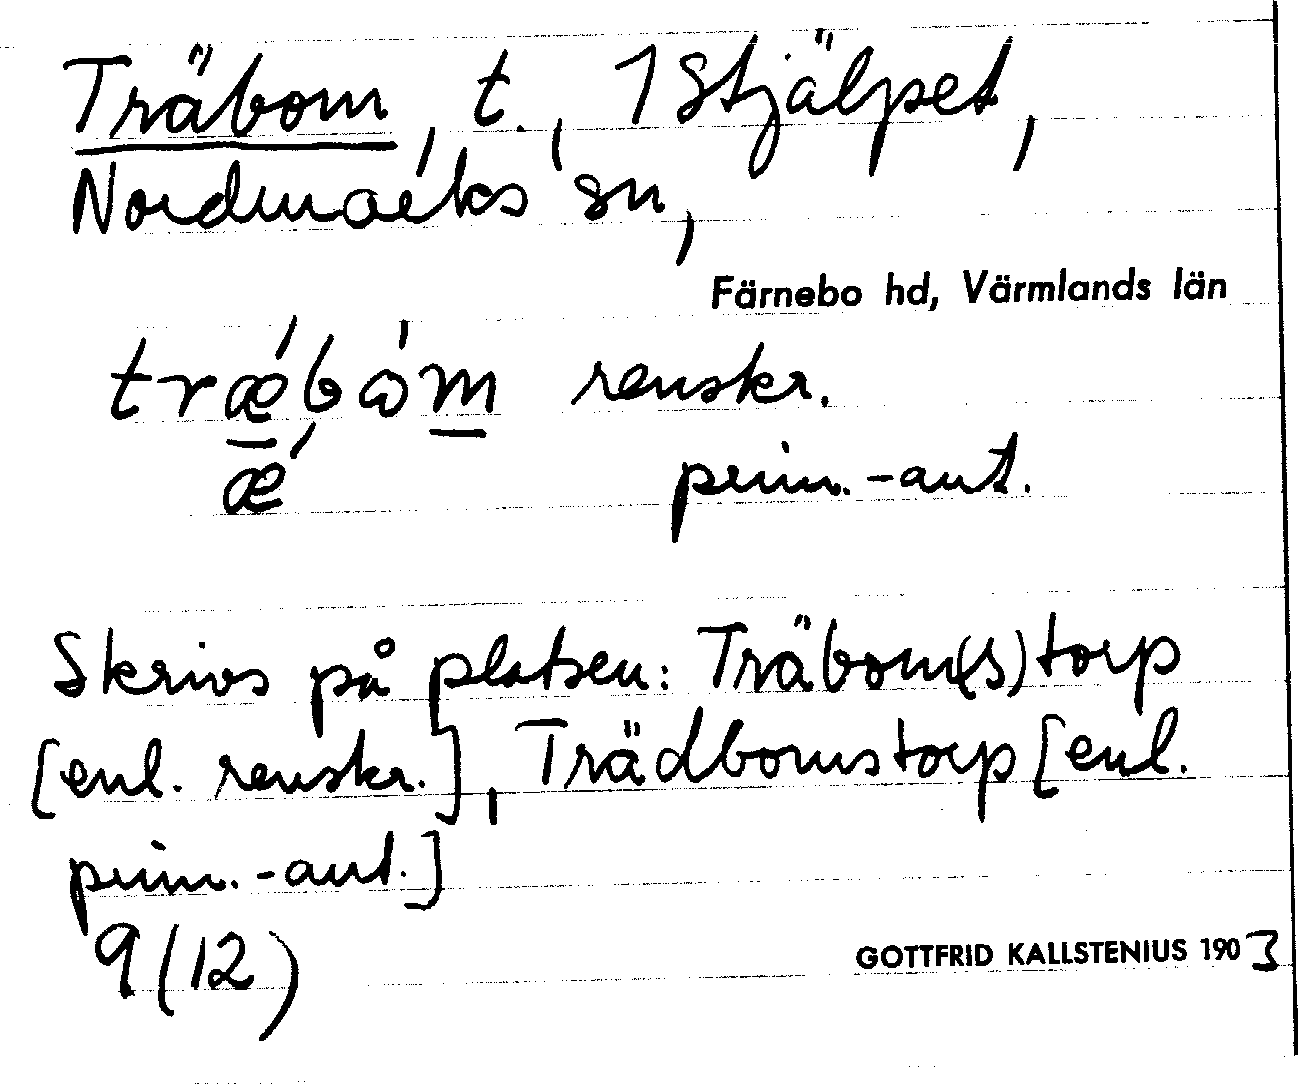 Träbom, t., 1 Stjälpet,
Nordmarks sn,
Färnebo hd, Värmlands län
trǽbὼm renskr.
ǽ prim.-ant.
Skrivs på platsen: Träbom(s)torp
[enl. renskr.], Trädbomstorp [enl.
prim.-ant.]
9(12)
GOTTFRID KALLSTENIUS 1903